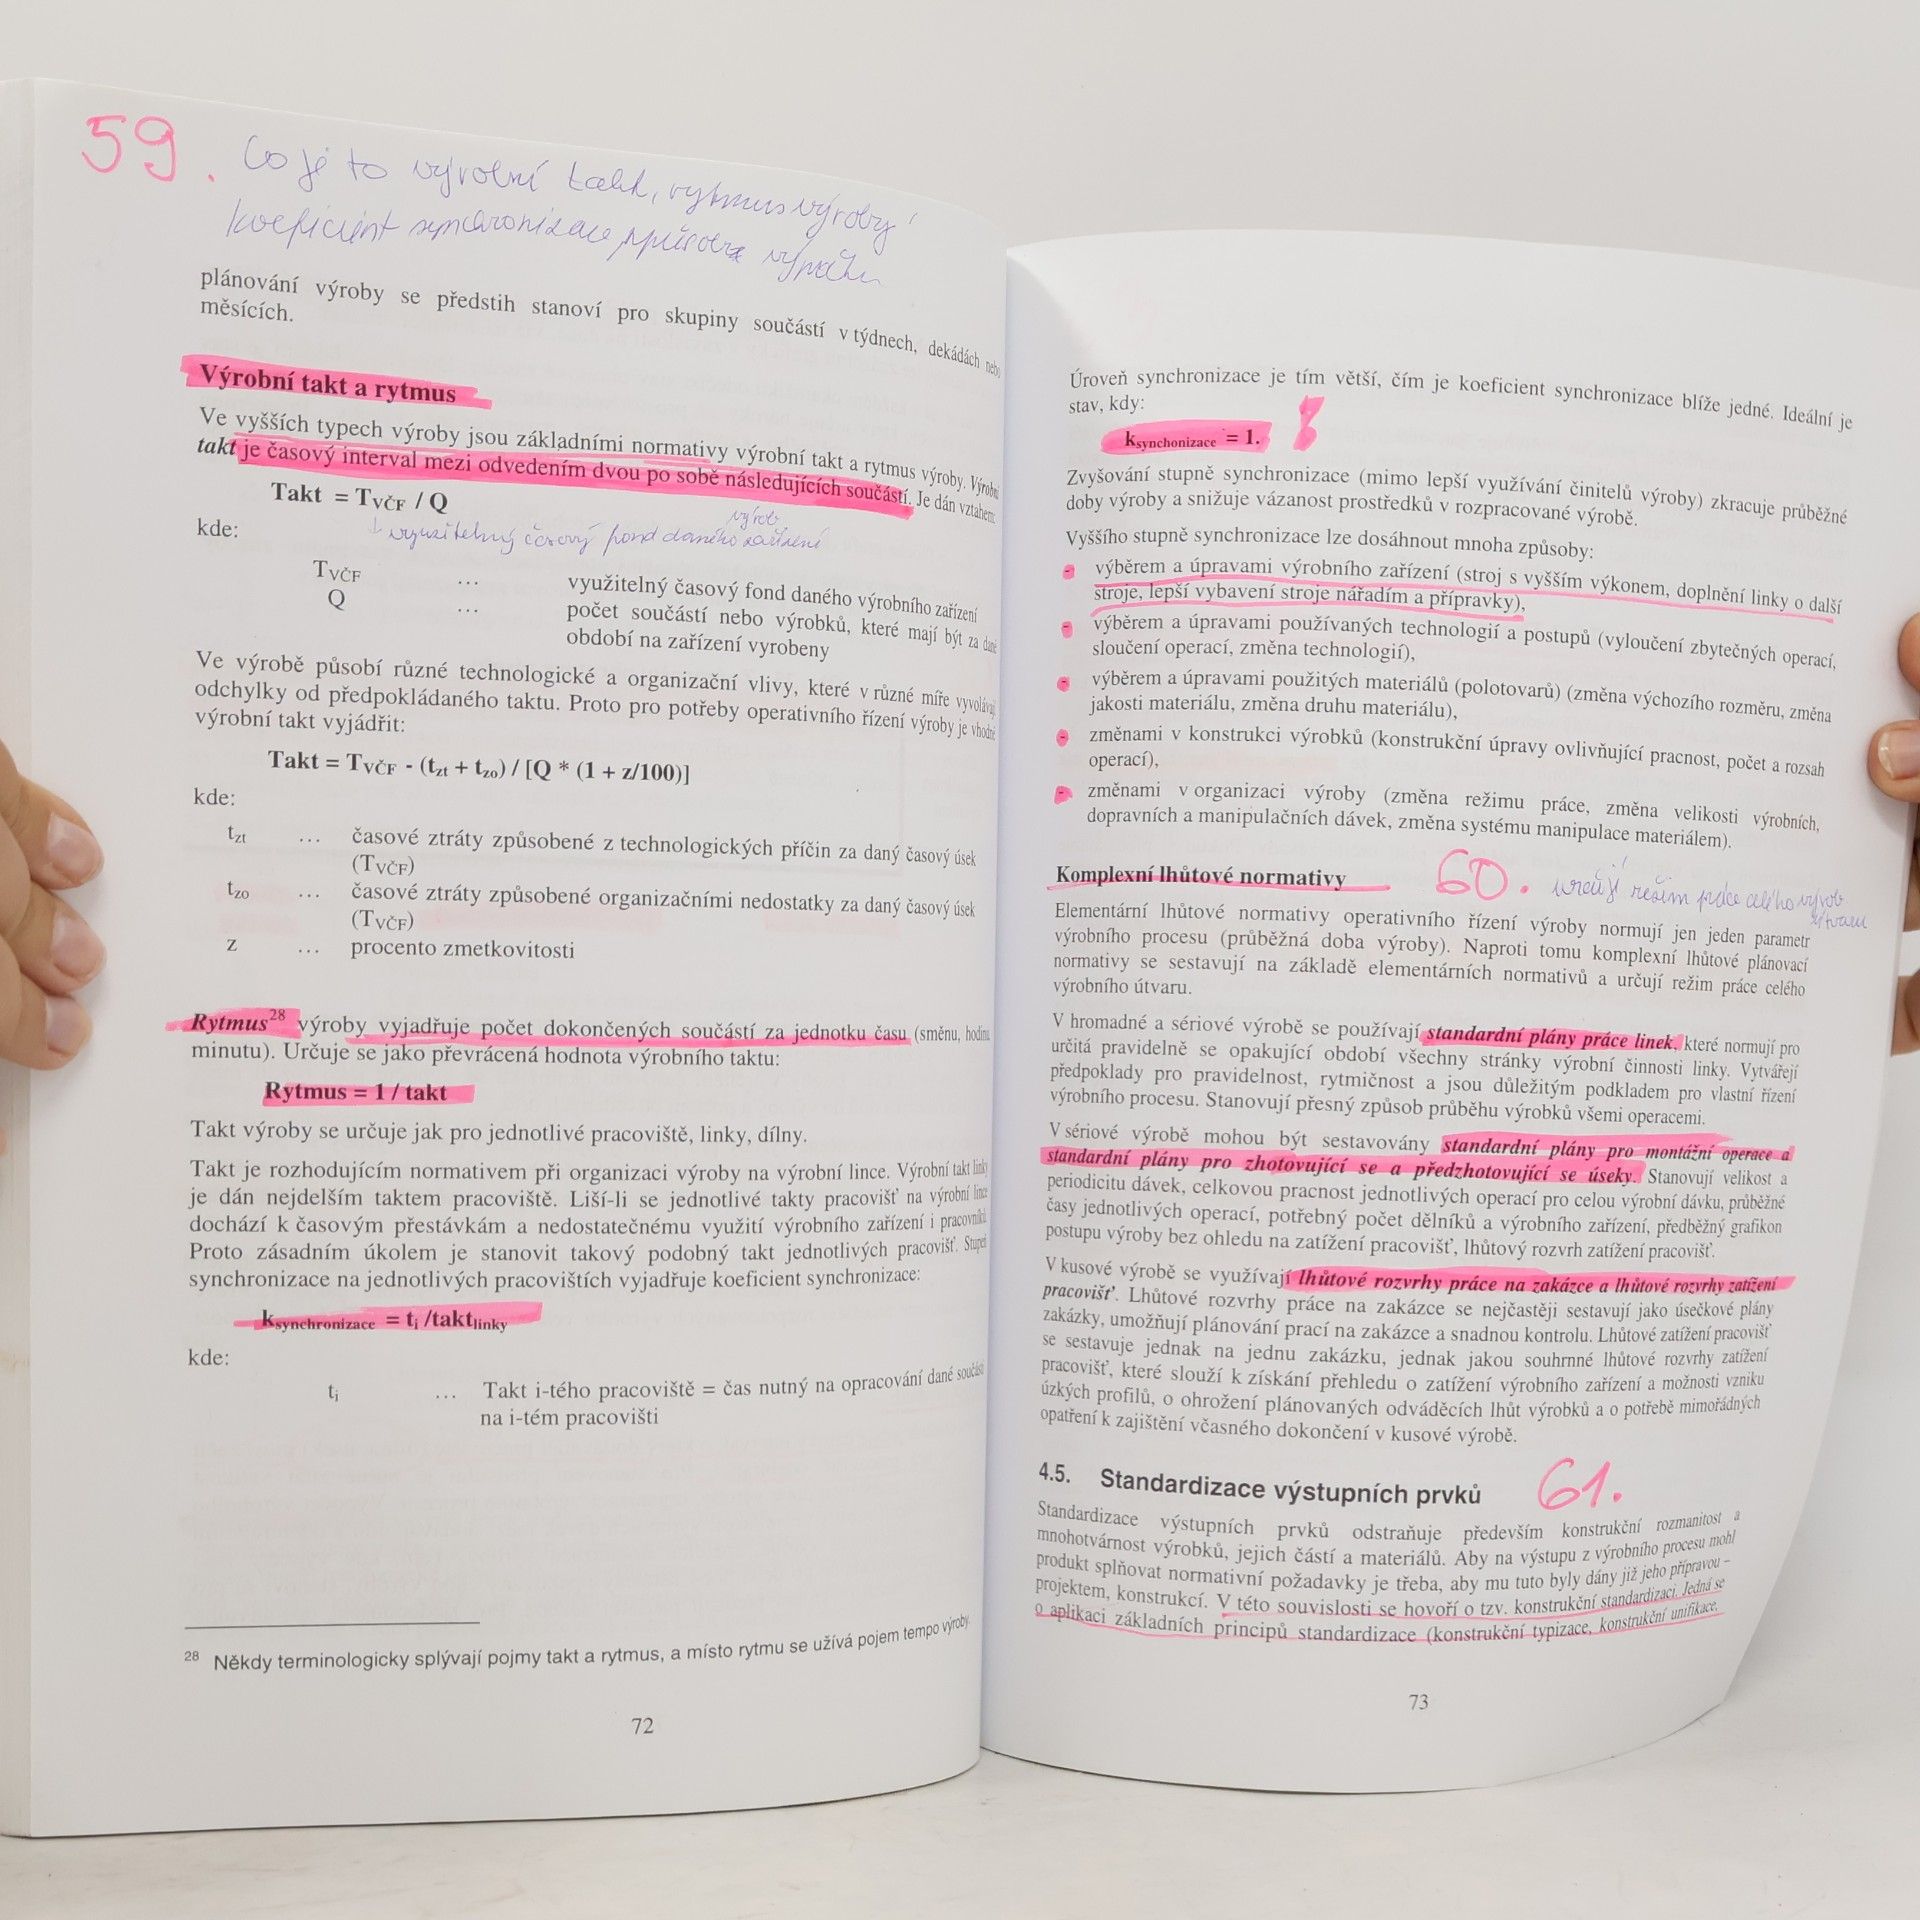 59. Co je to výrobní takt, rytmus výroby,
koeficient synchronizace způsoby výpočtu
plánování výroby se předstih stanoví pro skupiny součástí v týdnech, dekádách nebo
měsících.
Výrobní takt a rytmus
Ve vyšších typech výroby jsou základními normativy výrobní takt a rytmus výroby. Výrobní
takt je časový interval mezi odvedením dvou po sobě následujících součástí. Je dán vztahem:
Takt = TVČF / Q
výrob
↓ využitelný časový fond daného zařízení
kde:
TVČF ... využitelný časový fond daného výrobního zařízení
Q ... počet součástí nebo výrobků, které mají být za dané
období na zařízení vyrobeny
Ve výrobě působí různé technologické a organizační vlivy, které v různé míře vyvolávají
odchylky od předpokládaného taktu. Proto pro potřeby operativního řízení výroby je vhodné
výrobní takt vyjádřit:
Takt = TVČF - (tzt + tzo) / [Q * (1 + z/100)]
kde:
tzt ... časové ztráty způsobené z technologických příčin za daný časový úsek
(TVČF)
tzo ... časové ztráty způsobené organizačními nedostatky za daný časový úsek
(TVČF)
z ... procento zmetkovitosti
Rytmus28 výroby vyjadřuje počet dokončených součástí za jednotku času (směnu, hodinu,
minutu). Určuje se jako převrácená hodnota výrobního taktu:
Rytmus = 1 / takt
Takt výroby se určuje jak pro jednotlivé pracoviště, linky, dílny.
Takt je rozhodujícím normativem při organizaci výroby na výrobní lince. Výrobní takt linky
je dán nejdelším taktem pracoviště. Liší-li se jednotlivé takty pracovišť na výrobní lince
dochází k časovým přestávkám a nedostatečnému využití výrobního zařízení i pracovníků.
Proto zásadním úkolem je stanovit takový podobný takt jednotlivých pracovišť. Stupeň
synchronizace na jednotlivých pracovištích vyjadřuje koeficient synchronizace:
ksynchronizace = ti /taktlinky
kde:
ti ... Takt i-tého pracoviště = čas nutný na opracování dané součásti
na i-tém pracovišti
28 Někdy terminologicky splývají pojmy takt a rytmus, a místo rytmu se užívá pojem tempo výroby.
72
Úroveň synchronizace je tím větší, čím je koeficient synchronizace blíže jedné. Ideální je
stav, kdy:
ksynchonizace = 1.
Zvyšování stupně synchronizace (mimo lepší využívání činitelů výroby) zkracuje průběžné
doby výroby a snižuje vázanost prostředků v rozpracované výrobě.
Vyššího stupně synchronizace lze dosáhnout mnoha způsoby:
- výběrem a úpravami výrobního zařízení (stroj s vyšším výkonem, doplnění linky o další
stroje, lepší vybavení stroje nářadím a přípravky),
- výběrem a úpravami používaných technologií a postupů (vyloučení zbytečných operací,
sloučení operací, změna technologií),
- výběrem a úpravami použitých materiálů (polotovarů) (změna výchozího rozměru, změna
jakosti materiálu, změna druhu materiálu),
- změnami v konstrukci výrobků (konstrukční úpravy ovlivňující pracnost, počet a rozsah
operací),
- změnami v organizaci výroby (změna režimu práce, změna velikosti výrobních,
dopravních a manipulačních dávek, změna systému manipulace materiálem).
Komplexní lhůtové normativy 60. určují režim práce celého výrob
útvaru
Elementární lhůtové normativy operativního řízení výroby normují jen jeden parametr
výrobního procesu (průběžná doba výroby). Naproti tomu komplexní lhůtové plánovací
normativy se sestavují na základě elementárních normativů a určují režim práce celého
výrobního útvaru.
V hromadné a sériové výrobě se používají standardní plány práce linek, které normují pro
určitá pravidelně se opakující období všechny stránky výrobní činnosti linky. Vytvářejí
předpoklady pro pravidelnost, rytmičnost a jsou důležitým podkladem pro vlastní řízení
výrobního procesu. Stanovují přesný způsob průběhu výrobků všemi operacemi.
V sériové výrobě mohou být sestavovány standardní plány pro montážní operace a
standardní plány pro zhotovující se a předzhotovující se úseky. Stanovují velikost a
periodicitu dávek, celkovou pracnost jednotlivých operací pro celou výrobní dávku, průběžné
časy jednotlivých operací, potřebný počet dělníků a výrobního zařízení, předběžný grafikon
postupu výroby bez ohledu na zatížení pracovišť, lhůtový rozvrh zatížení pracovišť.
V kusové výrobě se využívají lhůtové rozvrhy práce na zakázce a lhůtové rozvrhy zatížení
pracovišť. Lhůtové rozvrhy práce na zakázce se nejčastěji sestavují jako úsečkové plány
zakázky, umožňují plánování prací na zakázce a snadnou kontrolu. Lhůtové zatížení pracovišť
se sestavuje jednak na jednu zakázku, jednak jakou souhrnné lhůtové rozvrhy zatížení
pracovišť, které slouží k získání přehledu o zatížení výrobního zařízení a možnosti vzniku
úzkých profilů, o ohrožení plánovaných odváděcích lhůt výrobků a o potřebě mimořádných
opatření k zajištění včasného dokončení v kusové výrobě.
4.5. Standardizace výstupních prvků 61.
Standardizace výstupních prvků odstraňuje především konstrukční rozmanitost a
mnohotvárnost výrobků, jejich částí a materiálů. Aby na výstupu z výrobního procesu mohl
produkt splňovat normativní požadavky je třeba, aby mu tuto byly dány již jeho přípravou –
projektem, konstrukcí. V této souvislosti se hovoří o tzv. konstrukční standardizaci. Jedná se
o aplikaci základních principů standardizace (konstrukční typizace, konstrukční unifikace,
73